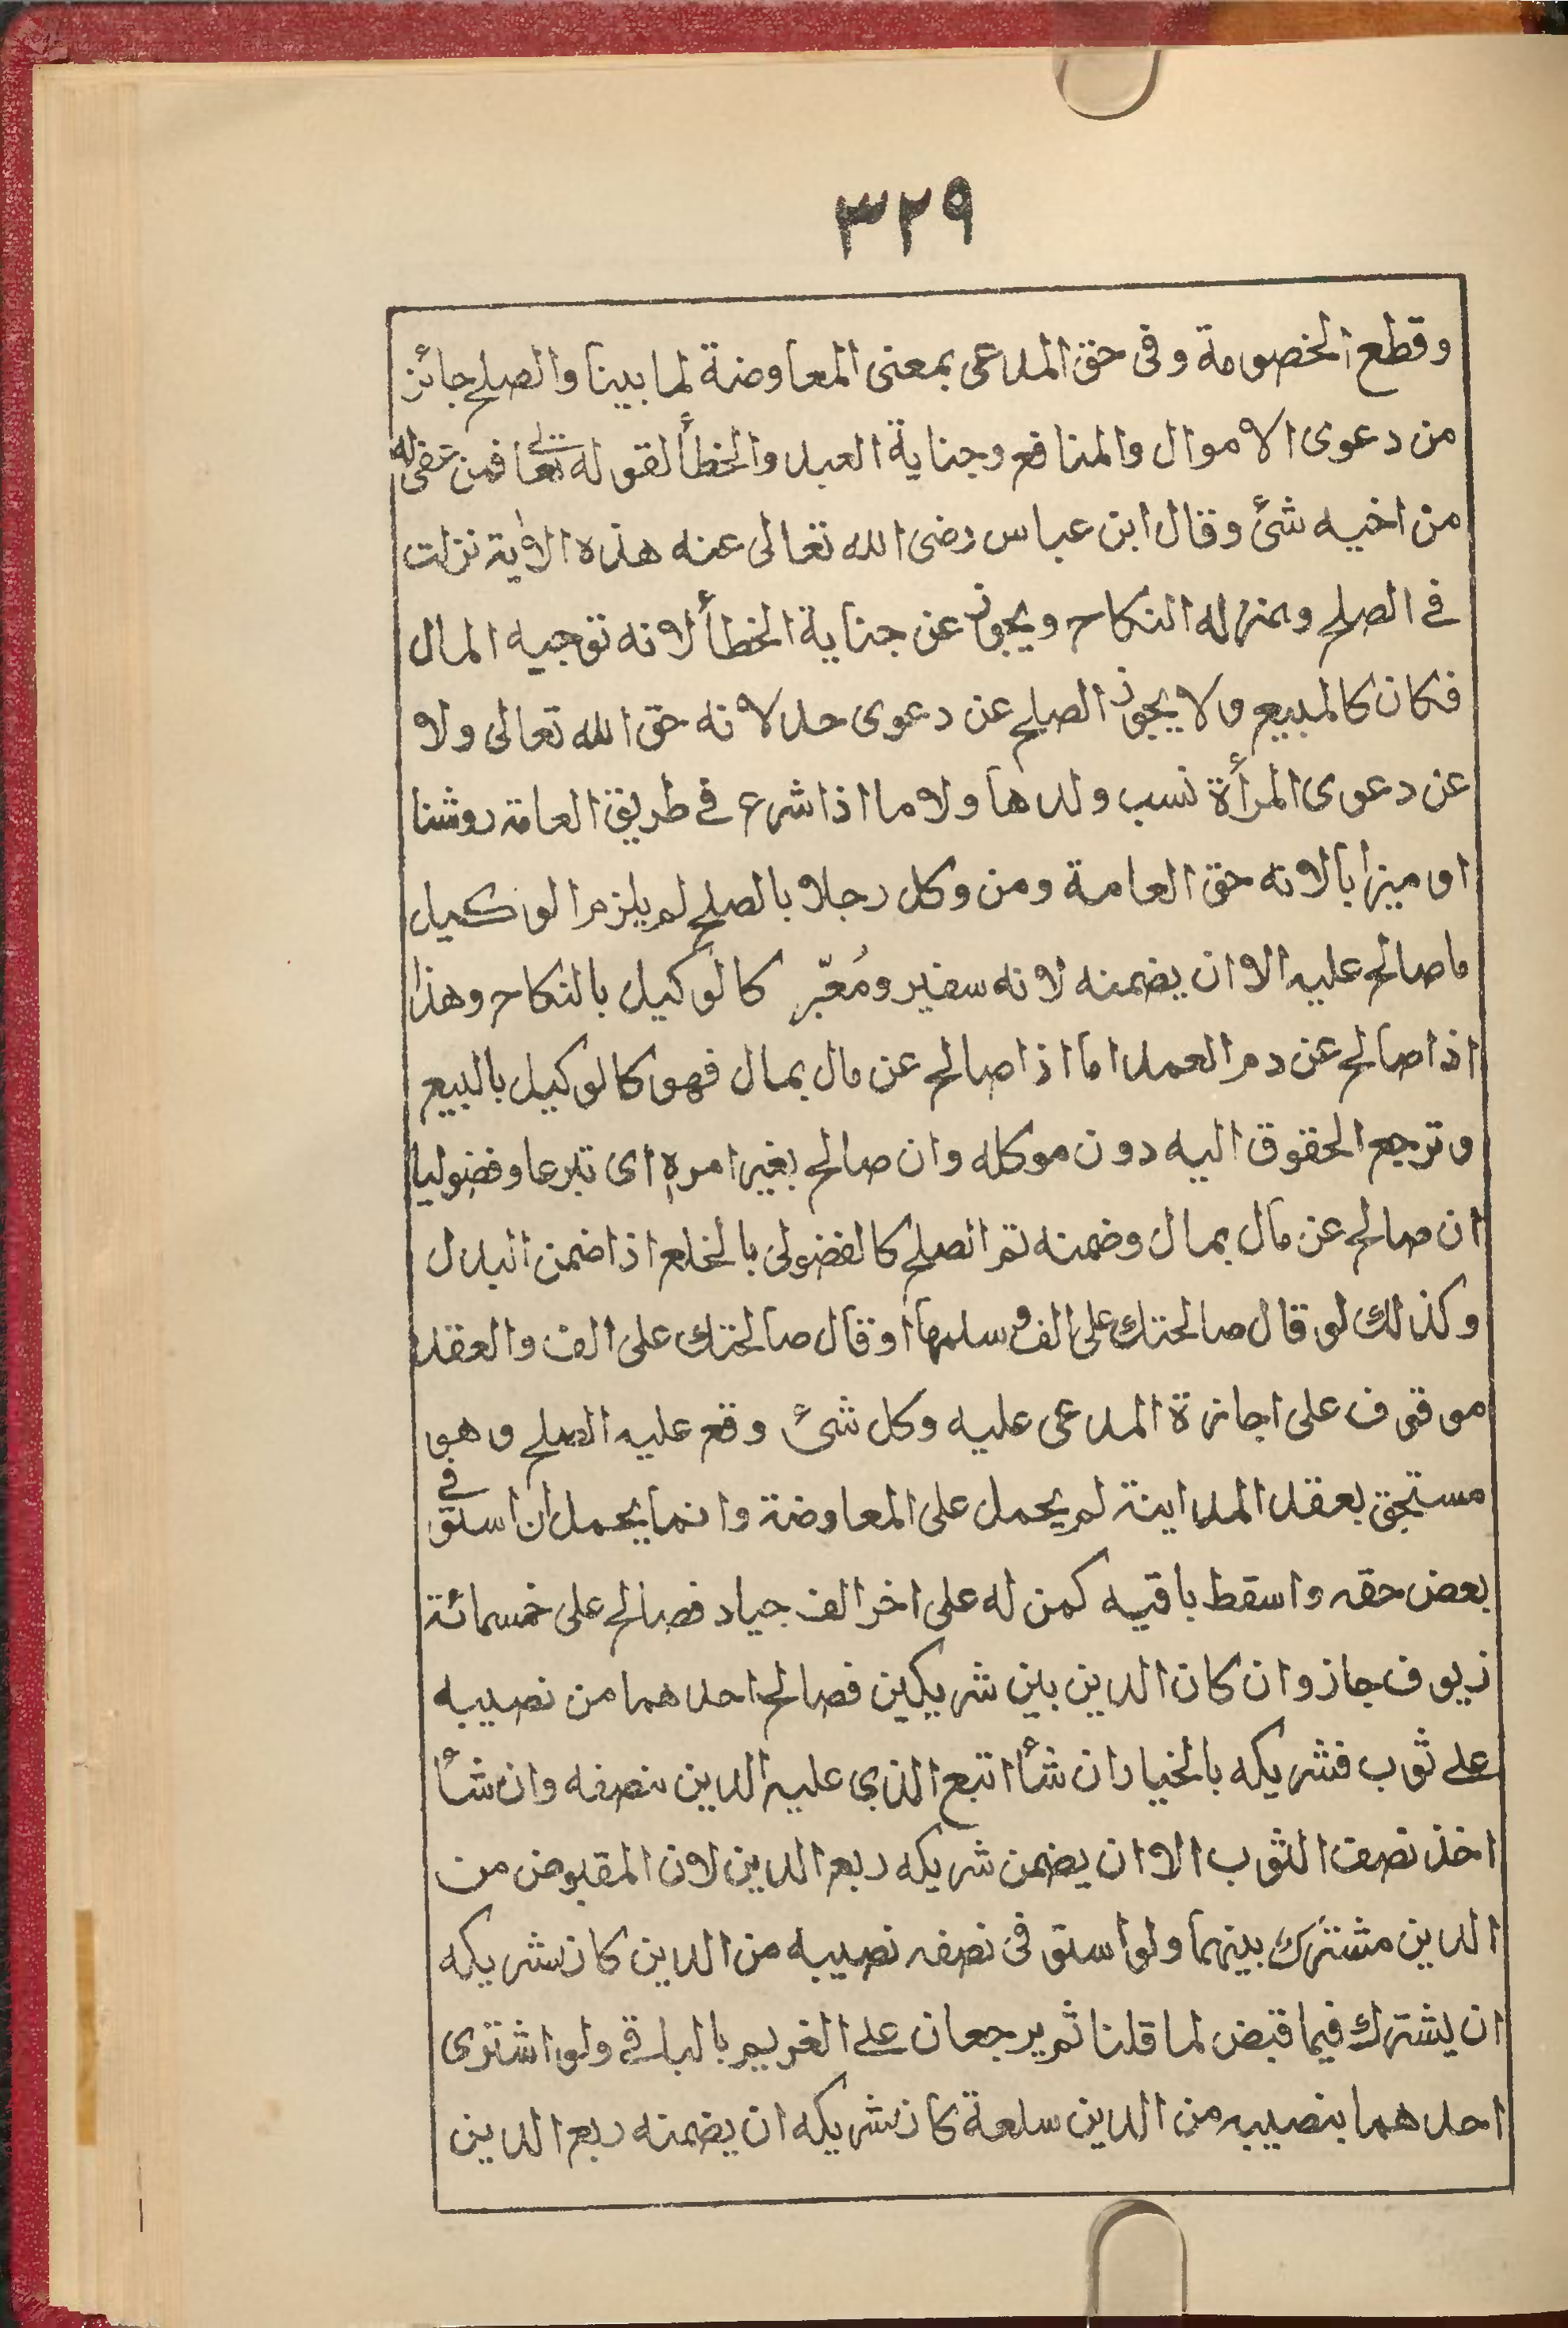 ٣٢٩
وقطع الخصومة وفى حق المدعى بمعنى المعاوضة لما بينا والصلح جائز
من دعوى الاموال والمنافع وجناية العبد والخطأ لقوله تعالى فمن عفى له
من اخيه شئ وقال ابن عباس رضى الله تعالى عنه هذه الاية نزلت
فى الصلح وبمنزله النكاح ويجوز عن جناية الخطأ لانه توجيه المال
فكان كالمبيع ولا يجوز الصلح عن دعوى حد لانه حق الله تعالى ولا
عن دعوى المرأة نسب ولدها ولا ما اذا شرع فى طريق العامة روشنا
او ميزابا لانه حق العامة ومن وكل رجلا بالصلح لم يلزم الوكيل
ما صالح عليه الا ان يضمنه لانه سفير ومُعبّر كالوكيل بالنكاح وهذا
اذا صالح عن دم العمد اما اذا صالح عن مال بمال فهو كالوكيل بالبيع
وترجع الحقوق اليه دون موكله وان صالح بغير امره اى تبرعا وفضوليا
ان صالح عن مال بمال وضمنه تم الصلح كالفضولى بالخلع اذا ضمن البدل
وكذلك لو قال صالحتك على الف وسلمها او قال صالحتك على الف والعقد
موقوف على اجازة المدعى عليه وكل شئ وقع عليه الصلح وهو
مستحق بعقد المداينة لم يحمل على المعاوضة وانما يحمل ان استوفى
بعض حقه واسقط باقيه كمن له على اخر الف جياد فصالح على خمسمائة
زيوف جاز وان كان الدين بين شريكين فصالح احدهما من نصيبه
على ثوب فشريكه بالخيار ان شأ اتبع الذى عليه الدين بنصفه وان شأ
اخذ نصف الثوب الا ان يضمن شريكه ربع الدين لان المقبوض من
الدين مشترك بينهما ولو استوفى نصفه نصيبه من الدين كان شريكه
ان يشترك فيما قبض لما قلنا ثم يرجعان على الغريم بالباقى ولو اشترى
احدهما بنصيبه من الدين سلعة كان شريكه ان يضمنه ربع الدين